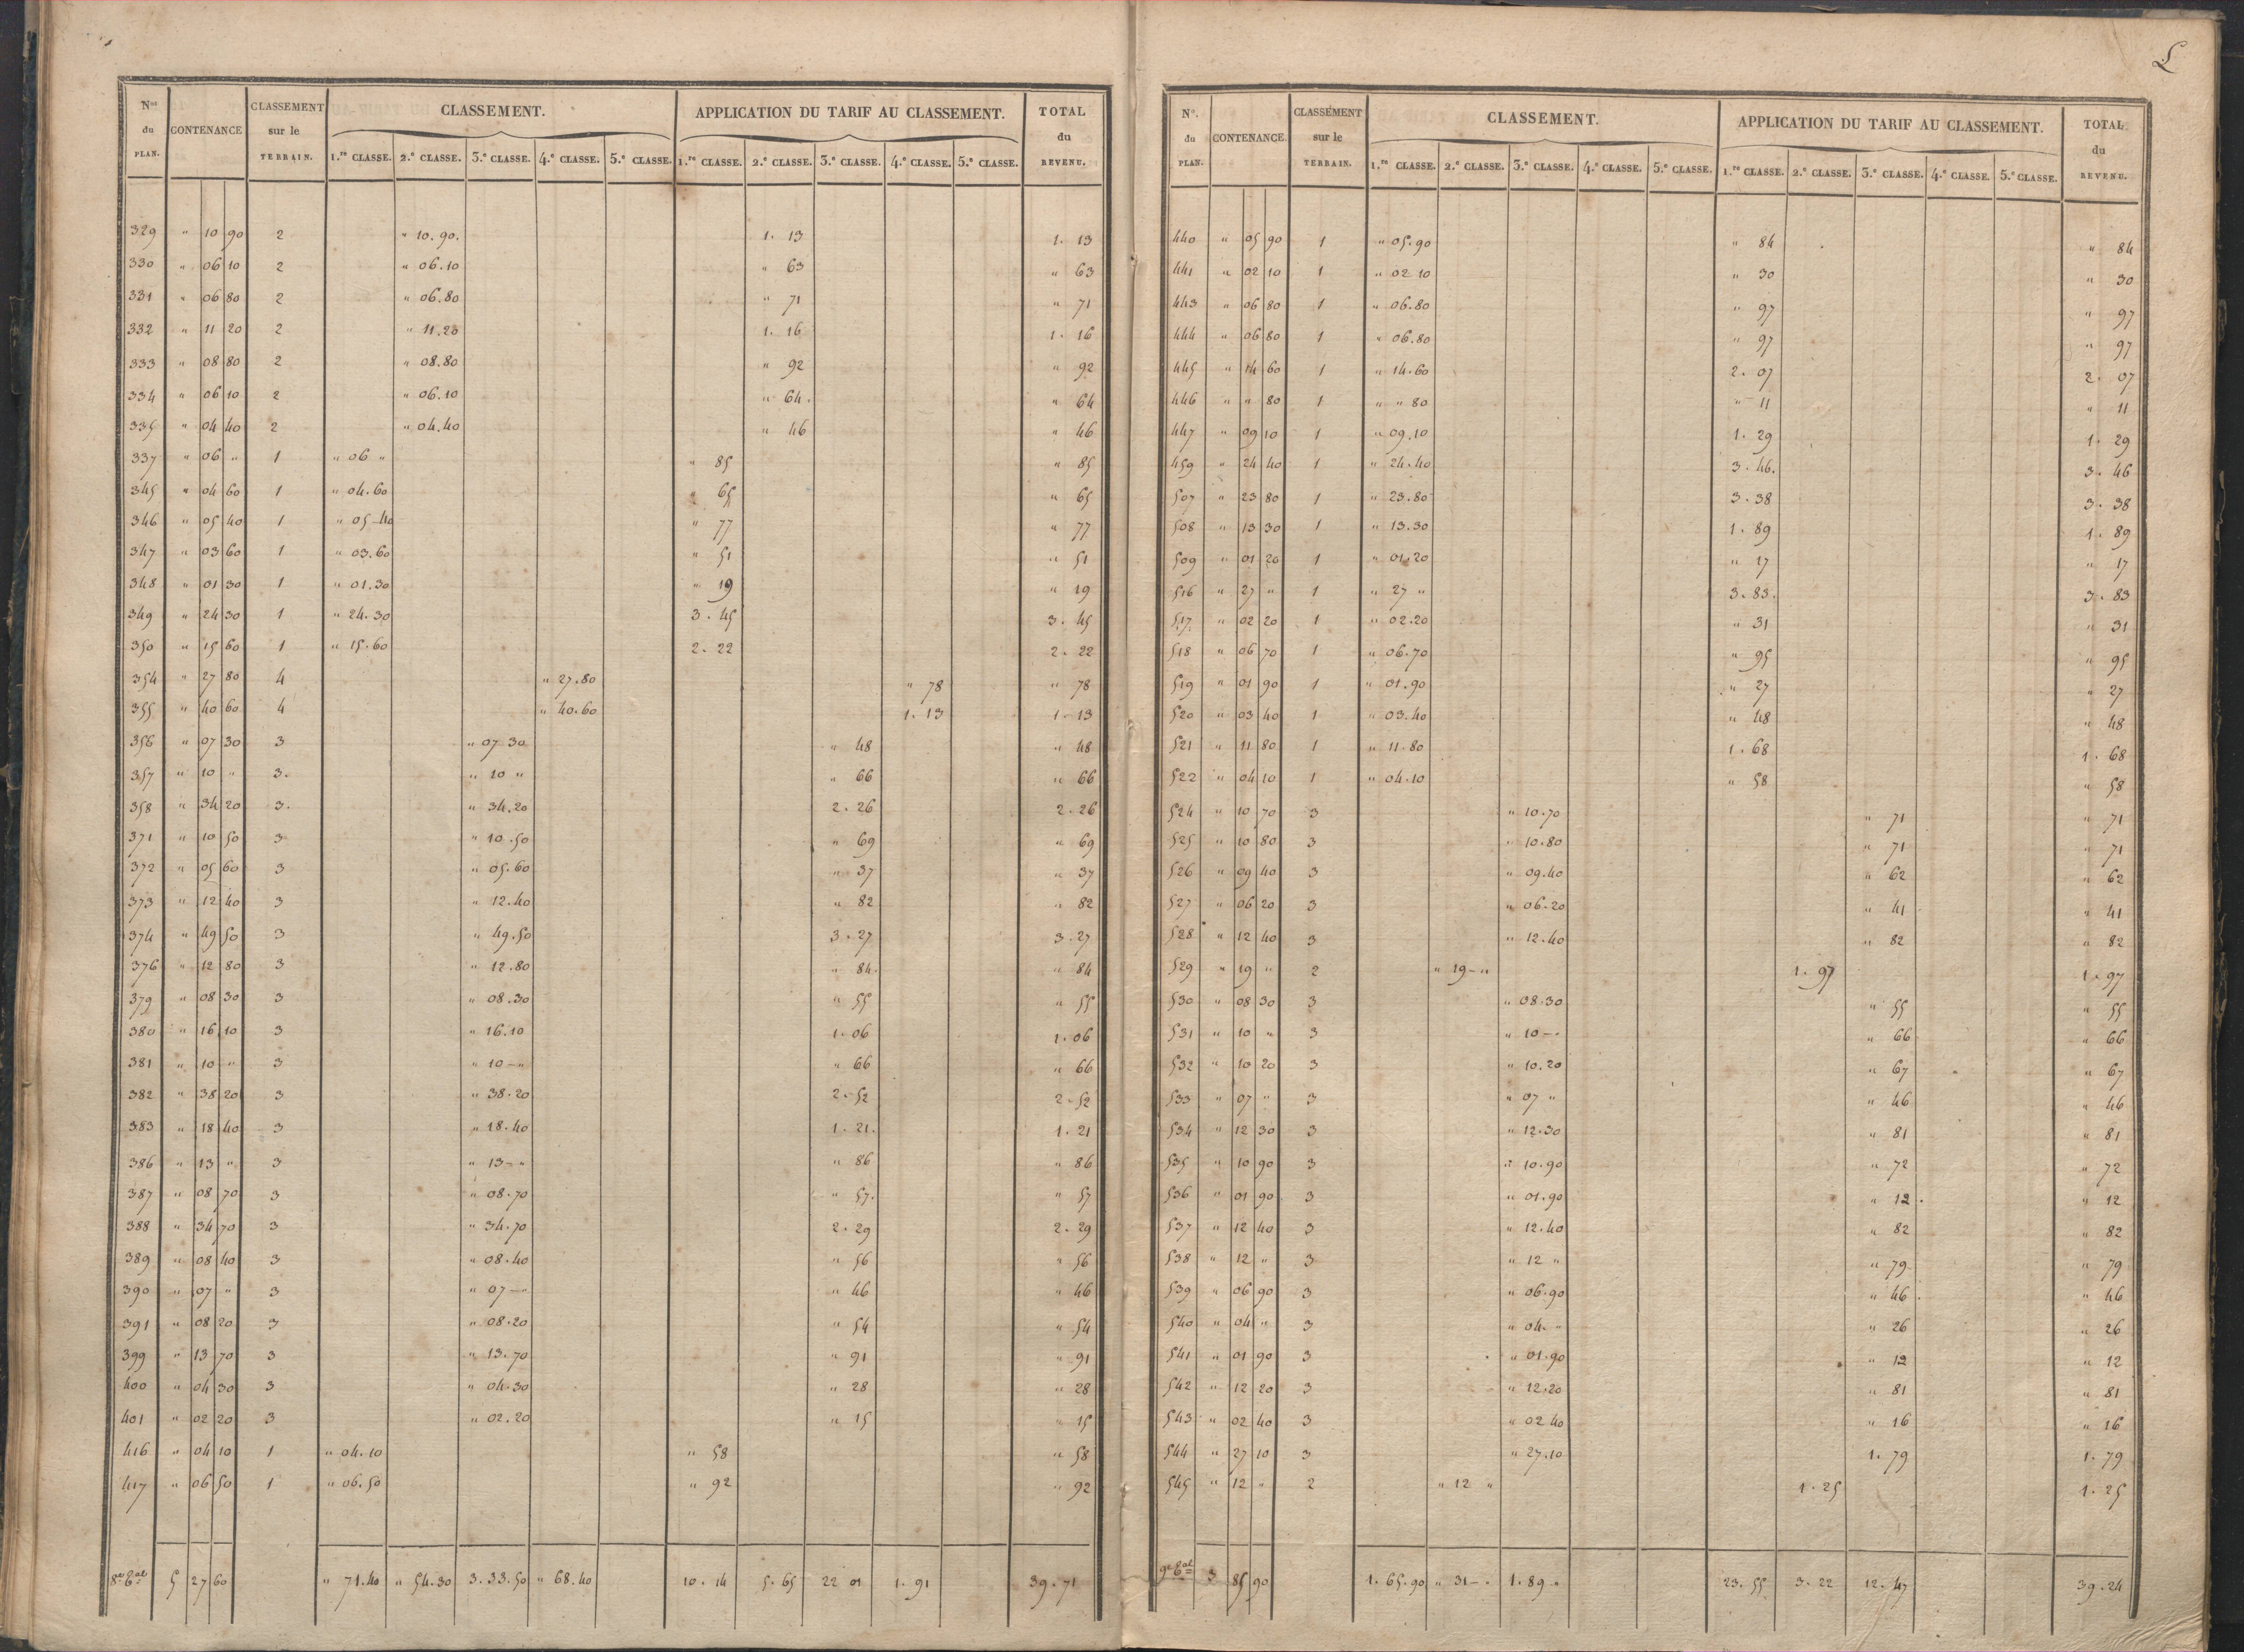 L
Nos du PLAN. CONTENANCE CLASSEMENT sur le TERRAIN. CLASSEMENT. APPLICATION DU TARIF AU CLASSEMENT. TOTAL du REVENU.
1.re CLASSE. 2.e CLASSE. 3.e CLASSE. 4.e CLASSE. 5.e CLASSE. 1.re CLASSE. 2.e CLASSE. 3.e CLASSE. 4.e CLASSE. 5.e CLASSE.
329 " 10 90 2 " 10.90. 1. 13 1. 13
330 " 06 10 2 " 06.10 " 63 " 63
331 " 06 80 2 " 06.80 " 71 " 71
332 " 11 20 2 " 11.20 1. 16 1. 16
333 " 08 80 2 " 08.80 " 92 " 92
334 " 06 10 2 " 06.10 " 64. " 64
335 " 04 40 2 " 04.40 " 46 " 46
337 " 06 " 1 " 06 " " 85 " 85
345 " 04 60 1 " 04.60 " 65 " 65
346 " 05 40 1 " 05-40 " 77 " 77
347 " 03 60 1 " 03.60 " 51 " 51
348 " 01 30 1 " 01.30 " 19 " 19
349 " 24 30 1 " 24.30 3. 45 3. 45
350 " 15 60 1 " 15.60 2. 22 2. 22
354 " 27 80 4 " 27.80 " 78 " 78
355 " 40 60 4 " 40.60 1. 13 1. 13
356 " 07 30 3 " 07 30 " 48 " 48
357 " 10 " 3. " 10 " " 66 " 66
358 " 34 20 3. " 34.20 2. 26 2. 26
371 " 10 50 3 " 10.50 " 69 " 69
372 " 05 60 3 " 05.60 " 37 " 37
373 " 12 40 3 " 12.40 " 82 " 82
374 " 49 50 3 " 49.50 3. 27 3. 27
376 " 12 80 3 " 12.80 " 84. " 84
379 " 08 30 3 " 08.30 " 55 " 55
380 " 16 10 3 " 16.10 1. 06 1. 06
381 " 10 " 3 " 10 - " " 66 " 66
382 " 38 20 3 " 38.20 2. 52 2. 52
383 " 18 40 3 " 18.40 1. 21. 1. 21
386 " 13 " 3 " 13 - " " 86 " 86
387 " 08 70 3 " 08.70 " 57. " 57
388 " 34 70 3 " 34.70 2. 29 2. 29
389 " 08 40 3 " 08.40 " 56 " 56
390 " 07 " 3 " 07 - " " 46 " 46
391 " 08 20 3 " 08.20 " 54 " 54
399 " 13 70 3 " 13.70 " 91 " 91
400 " 04 30 3 " 04.30 " 28 " 28
401 " 02 20 3 " 02.20 " 15 " 15
416 " 04 10 1 " 04.10 " 58 " 58
417 " 06 50 1 " 06.50 " 92 " 92
8e tal 5 27 60 " 71.40 " 54.30 3.33.50 " 68.40 10. 14 5. 65 22 01 1. 91 39. 71
No. du PLAN. CONTENANCE. CLASSEMENT sur le TERRAIN. CLASSEMENT. APPLICATION DU TARIF AU CLASSEMENT. TOTAL du REVENU.
1.re CLASSE. 2.e CLASSE. 3.e CLASSE. 4.e CLASSE. 5.e CLASSE. 1.re CLASSE. 2.e CLASSE. 3.e CLASSE. 4.e CLASSE. 5.e CLASSE.
440 " 05 90 1 " 05.90 " 84 " 84
441 " 02 10 1 " 02 10 " 30 " 30
443 " 06 80 1 " 06.80 " 97 " 97
444 " 06 80 1 " 06.80 " 97 " 97
445 " 14 60 1 " 14.60 2. 07 2. 07
446 " " 80 1 " " 80 " 11 " 11
447 " 09 10 1 " 09.10 1. 29 1. 29
459 " 24 40 1 " 24.40 3. 46. 3. 46
507 " 23 80 1 " 23.80 3. 38 3. 38
508 " 13 30 1 " 13.30 1. 89 1. 89
509 " 01 20 1 " 01.20 " 17 " 17
516 " 27 " 1 " 27 " 3. 83. 3. 83
517 " 02 20 1 " 02.20 " 31 " 31
518 " 06 70 1 " 06.70 " 95 " 95
519 " 01 90 1 " 01.90 " 27 " 27
520 " 03 40 1 " 03.40 " 48 " 48
521 " 11 80 1 " 11.80 1. 68 1. 68
522 " 04 10 1 " 04.10 " 58 " 58
524 " 10 70 3 " 10.70 " 71 " 71
525 " 10 80 3 " 10.80 " 71 " 71
526 " 09 40 3 " 09.40 " 62 " 62
527 " 06 20 3 " 06.20 " 41 " 41
528 " 12 40 3 " 12.40 " 82 " 82
529 " 19 " 2 " 19 - " 1. 97 1. 97
530 " 08 30 3 " 08.30 " 55 " 55
531 " 10 " 3 " 10 - " " 66 " 66
532 " 10 20 3 " 10.20 " 67 " 67
533 " 07 " 3 " 07 " " 46 " 46
534 " 12 30 3 " 12.30 " 81 " 81
535 " 10 90 3 " 10.90 " 72 " 72
536 " 01 90 3 " 01.90 " 12. " 12
537 " 12 40 3 " 12.40 " 82 " 82
538 " 12 " 3 " 12 " " 79 " 79
539 " 06 90 3 " 06.90 " 46. " 46
540 " 04 " 3 " 04. " " 26 " 26
541 " 01 90 3 " 01.90 " 12 " 12
542 " 12 20 3 " 12.20 " 81 " 81
543 " 02 40 3 " 02 40 " 16 " 16
544 " 27 10 3 " 27.10 1. 79 1. 79
545 " 12 " 2 " 12 " 1. 25 1. 25
9e tal 3 85 90 1. 65.90 " 31 - " 1. 89 " 23. 55 3. 22 12. 47 39. 24